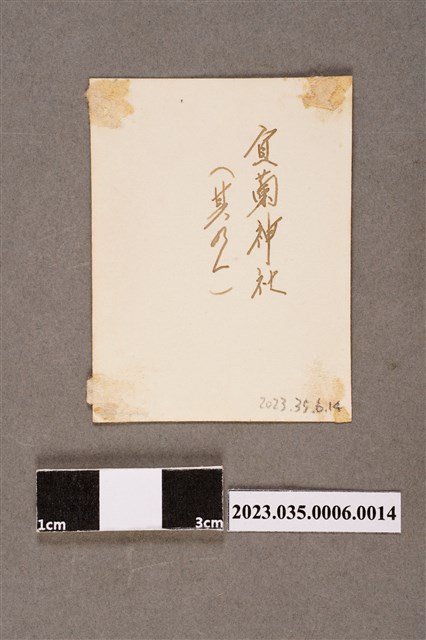 宜蘭神社
（其ノ一）
2023.35.6.14
1cm
3cm
2023.035.0006.0014